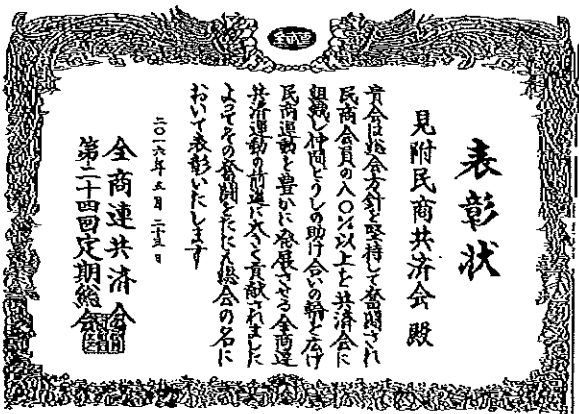 表彰状
見附民商共済会 殿
貴会は総会方針を堅持して奮闘され
民商会員の八〇%以上を共済会に
組織し仲間どうしの助け合いの輪を広げ
民商運動を豊かに発展させる全商連
共済運動の前進に大きく貢献されました
よってその奮闘をたたえ総会の名に
おいて表彰いたします
二〇一六年五月二十五日
全商連共済会
第二十四回定期総会